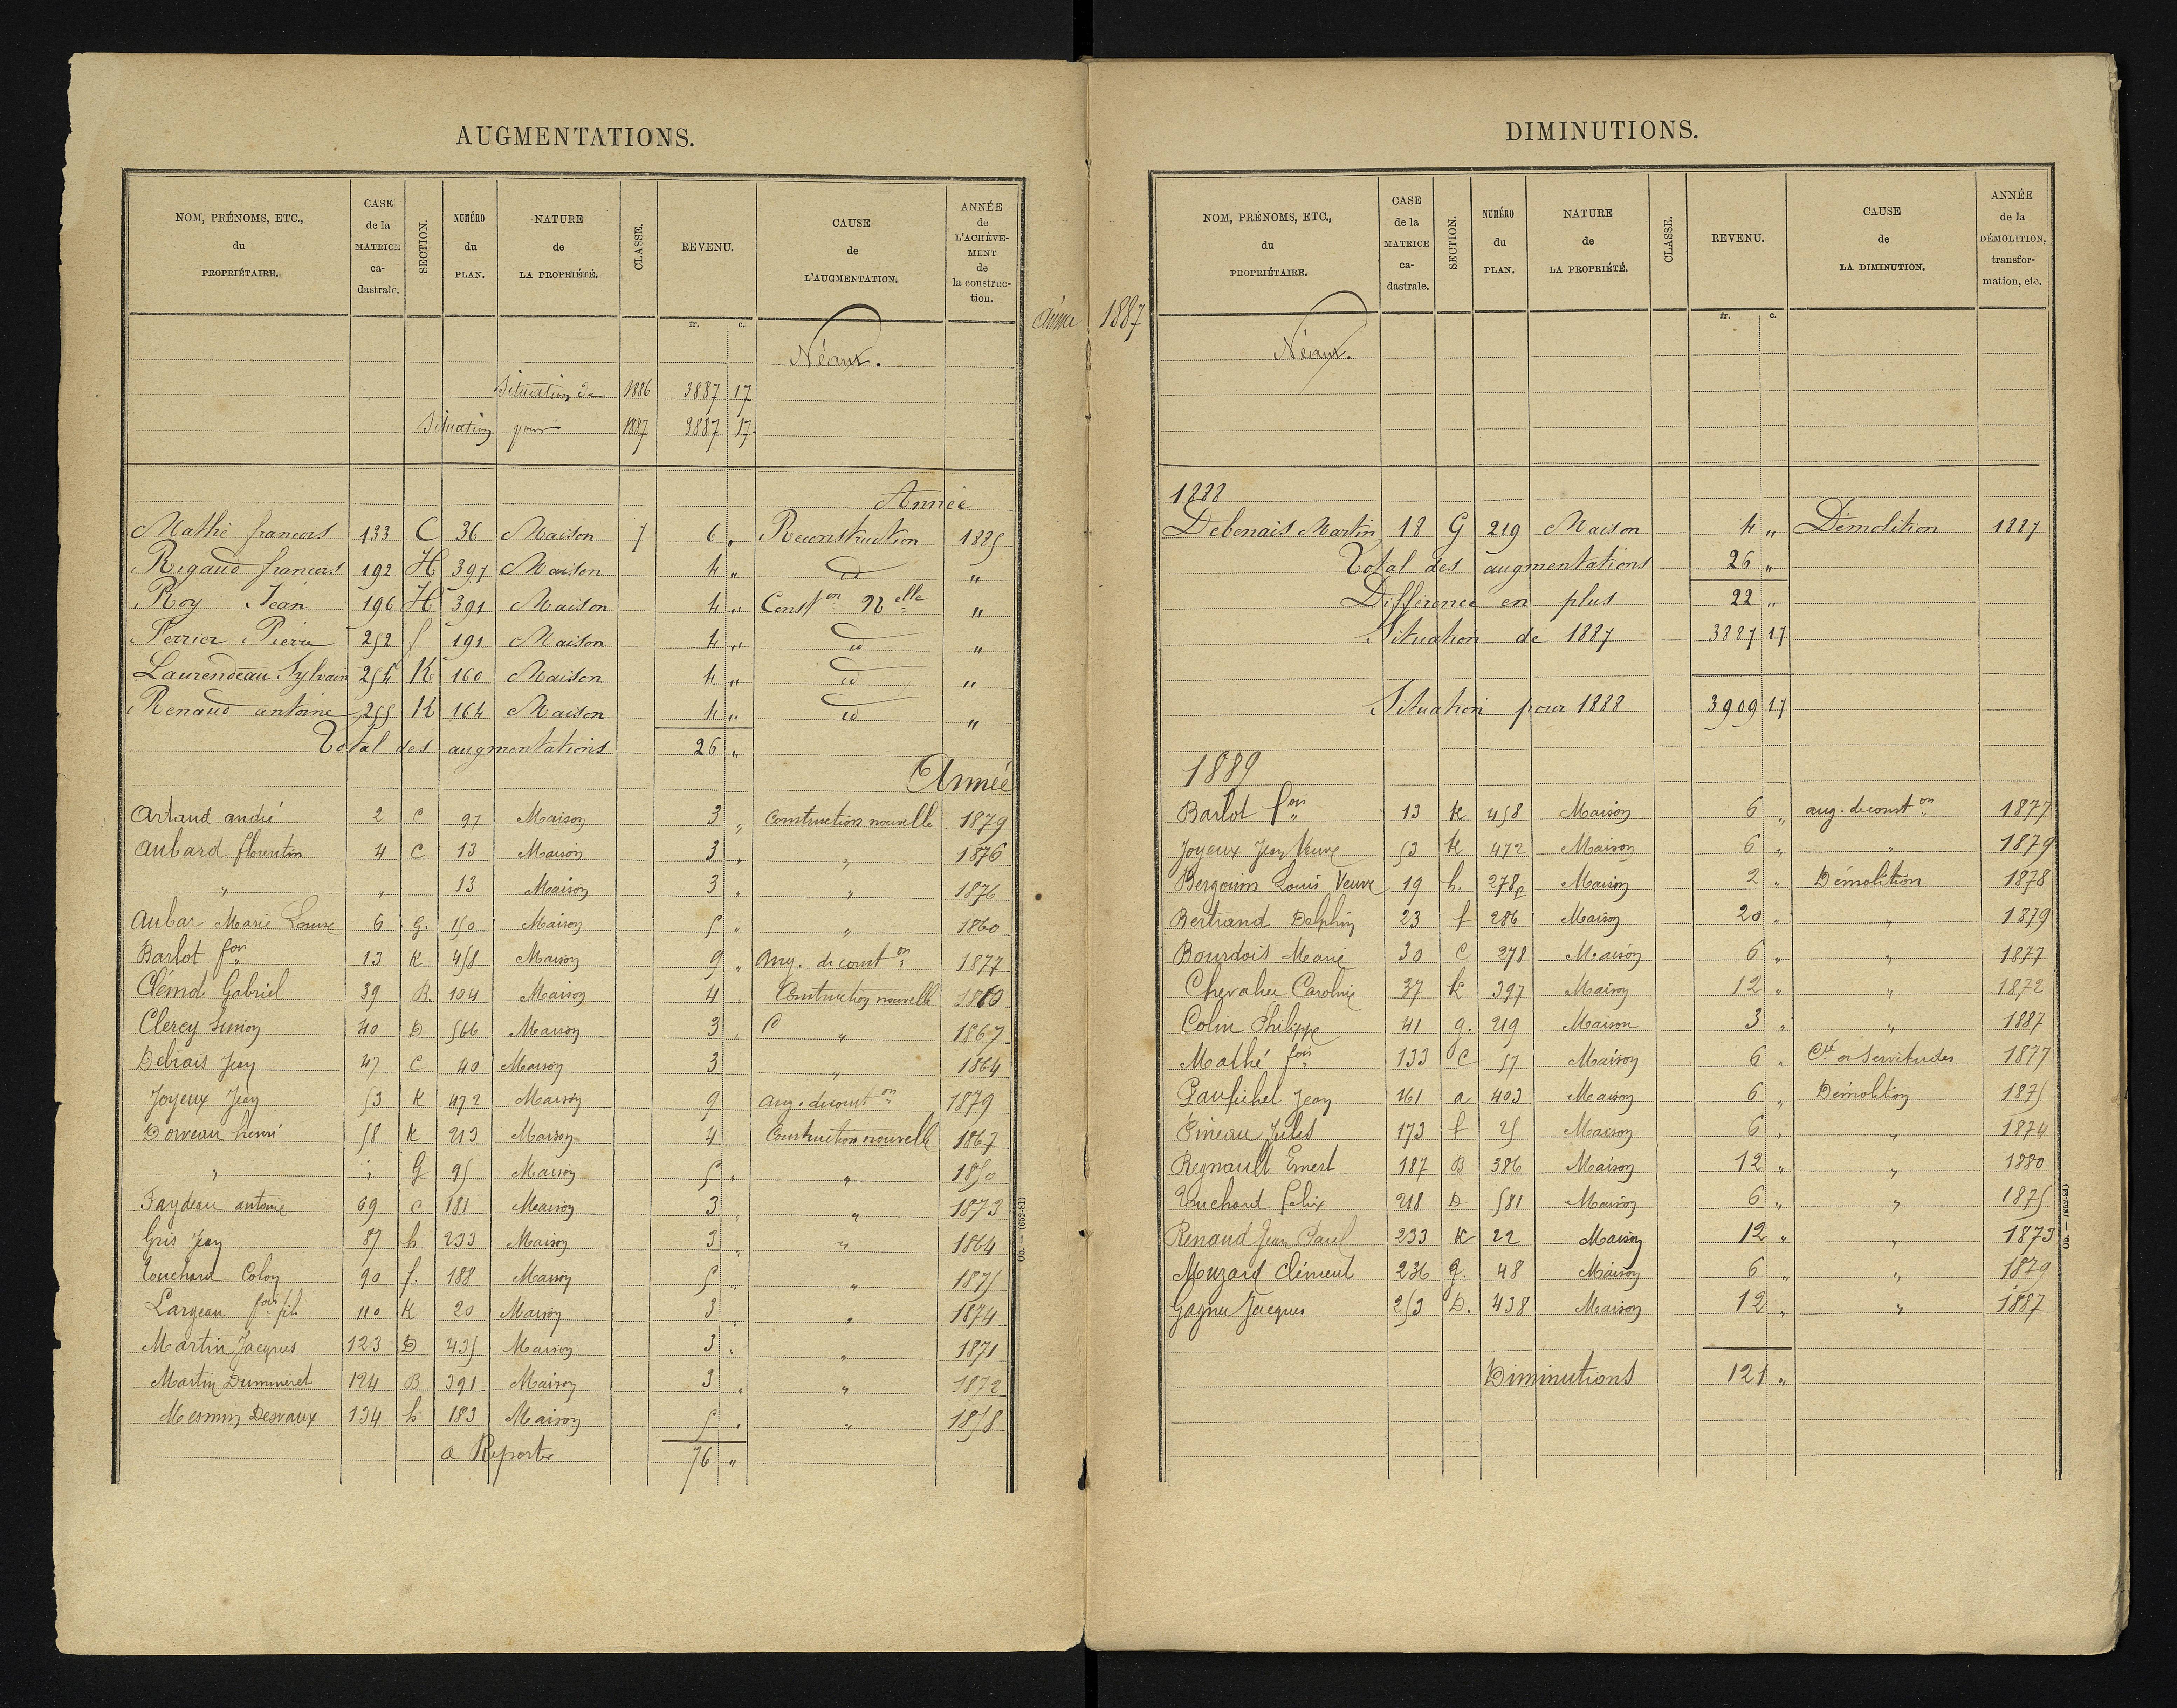 AUGMENTATIONS.
NOM, PRÉNOMS, ETC., du PROPRIÉTAIRE. CASE de la MATRICE ca-dastrale. SECTION. NUMÉRO du PLAN. NATURE de LA PROPRIÉTÉ. CLASSE. REVENU. CAUSE de L'AUGMENTATION. ANNÉE de L'ACHÈVE-MENT de la construc-tion.
fr. c.
Année 1887
Néant.
Situation de 1886 3887 17
Situation pour 1887 3887 17.
Année
Mathé francois 133 C 36 Maison 7 6 „ Reconstruction 1885
Rigaud francois 192 H 397 Maison 4 „ id „
Roy Jean 196 H 391 Maison 4 „ Const on Nelle „
Perrier Pierre 252 f 191 Maison 4 „ id „
Laurendeau Sylvain 254 K 160 Maison 4 „ id „
Renaud antoine 255 K 164 Maison 4 „ id „
Total des augmentations 26 „
Année
Artaud andré 2 C 97 Maison 3 „ Construction nouvelle 1879
Aubard florentin 4 C 13 Maison 3 „ „ 1876
„ „ 13 Maison 3 „ „ 1876
Aubar Marie Louise 6 G. 150 Maison 5 „ „ 1860
Barlot fois 13 K 458 Maison 9 „ Aug. de const on 1877
Clémot Gabriel 39 B. 104 Maison 4 „ Construction nouvelle 1860
Clercy Simon 40 D 566 Maison 3 „ „ 1867
Debiais Jean 47 C 40 Maison 3 „ 1864
Joyeux Jean 53 K 472 Maison 9 aug. de const on 1879
Dorveau henri 58 K 213 Maison 4 Construction nouvelle 1867
„ „ G 95 Maison 5 „ „ 1850
Faydeau antoine 69 C 181 Maison 3 „ „ 1873
Gris Jean 87 h 233 Maison 3 „ „ 1864
Touchard Colon 90 f. 188 Maison 5 „ „ 1875
Largeau fois fils 110 K 20 Maison 3 „ „ 1874
Martin Jacques 123 D 435 Maison 3 „ „ 1871
Martin Dumineret 124 B 391 Maison 3 „ „ 1872
Mesmin Desvaux 134 h 183 Maison 5 „ „ 1858
a Reporter 76 „
Ob. — (652-82)
DIMINUTIONS.
NOM, PRÉNOMS, ETC., du PROPRIÉTAIRE. CASE de la MATRICE ca-dastrale. SECTION. NUMÉRO du PLAN. NATURE de LA PROPRIÉTÉ. CLASSE. REVENU. CAUSE de LA DIMINUTION. ANNÉE de la DÉMOLITION, transfor-mation, etc.
fr. c.
Néant.
1888
Debenais Martin 18 G 219 Maison 4 „ Démolition 1887
Total des augmentations 26 „
Différence en plus 22 „
Situation de 1887 3887 17
Situation pour 1888 3909 17
1889
Barlot fois 13 K 458 Maison 6 „ aug. de const on 1877
Joyeux Jean Veuve 53 K 472 Maison 6 „ „ 1879
Bergouin Louis Veuve 19 h. 278p Maison 2 „ Démolition 1878
Bertrand Delphin 23 f 286 Maison 20 „ „ 1879
Bourdois Marie 30 C 278 Maison 6 „ „ 1877
Chevalier Caroline 37 K 397 Maison 12 „ „ 1872
Colin Philippe 41 g. 219 Maison 3 „ „ 1887
Mathé fois 133 C 57 Maison 6 „ Cté en Servitudes 1877
Paufichet Jean 161 a 403 Maison 6 „ Démolition 1875
Pineau Jules 173 f 25 Maison 6 „ „ 1874
Regnault Ernest 187 B 386 Maison 12 „ „ 1880
Touchard felix 218 D 581 Maison 6 „ „ 1875
Renaud Jean Paul 233 K 22 Maison 12 „ „ 1873
Muzard Clément 236 g. 48 Maison 6 „ „ 1879
Gagner Jacques 253 D. 438 Maison 12 „ „ 1887
Diminutions 121 „